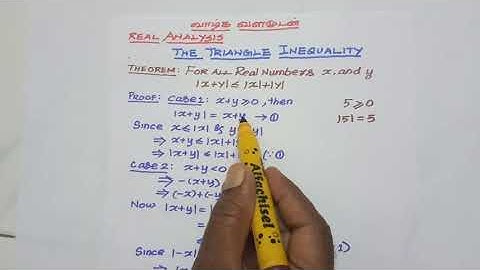 வாழ்க வளமுடன்
REAL ANALYSIS
THE TRIANGLE INEQUALITY
THEOREM: FOR ALL REAL NUMBERS x, and y
|x+y| ≤ |x|+|y|
PROOF: CASE 1: x+y ≥ 0, then 5 ≥ 0
|x+y| = x+y → ① |5| = 5
Since x ≤ |x| & y |y|
⇒ x+y ≤ |x|+
⇒ |x+y| ≤ |x| (∵ ①
CASE 2: x+y < 0
⇒ -(x+y)
⇒ (-x)+(-y)
Now |x+y| =
=
≤
Since |-x|
Alfachisel